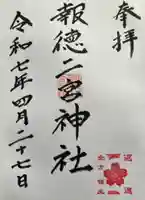 奉拝
報徳二宮神社
令和七年四月二十七日